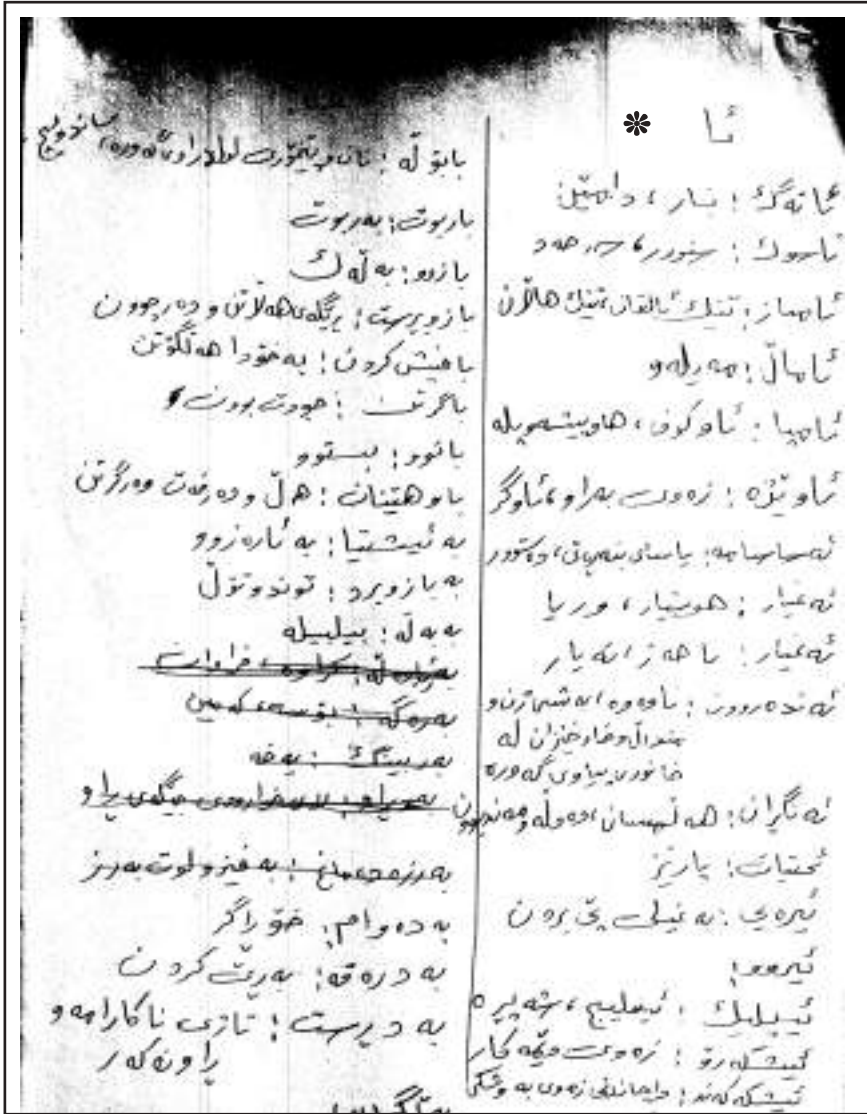 ئا *
ئاتەگ: بنار، دامێن
ئاسوك: سنوور، سەرحەد
ئاماز: تێك ئالقان، تێك هالان
ئاماڵ: مەیلەو
ئامپا: ئاوكوف، هاوپیشە
ئاوێژە: زەوی بەراو، ئاوگر
ئەساسنامە: یاسای بنەڕەتی، دەستوور
ئەغیار: هوشیار، وریا
ئەغیار: ناحەز، نەیار
ئەندەروون:
منداڵ و خاوخێزان لە
خانووی پیاوی گەورە
ئەنگران: هەڵسان،
ئحتیات: پارێز
ئیرەیی: بە غیلی پێ بردن
ئیروو:
ئیپلیك: ئیپلیچ، شەپێرە
ئیشكەڕۆ: زەوی دێمەكار
ئیشكەكەند: داچاندنی زەوی بە وشكی
بابۆڵە: نان و پێخۆری لوولدراوی گەورە، ساندویچ
باربوت: بەربوت
بازوو: بەڵەك
بازوبڕست: ڕێگەی هەڵاتن و دەرچوون
بافیش كردن: بەخۆدا هەڵگۆتن
باگرتن: جووت بوون
بانوو: بستوو
باوهێنان: هەل و دەرفەت وەرگرتن
بە ئیشتیا: بە ئارەزوو
بە بازوبرد: توندوتۆڵ
بەبەڵە: بیلبیلە
بەربینگ: یەخە
بەرزەدەماغ: بە فیز و لووت بەرز
بەدەوام: خۆڕاگر
بەدرەقە: بەڕێ كردن
بەدڕست: تازی ناكارامە و
ڕاونەكەر